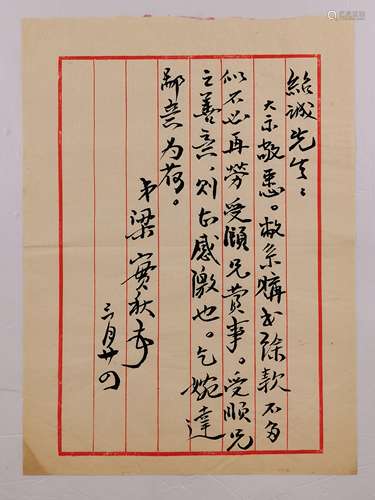 紹誠先生：
大示敬悉。敝系購書餘款不多
似不必再勞受頤兄費事。受頤兄
之善意，則甚感激也。乞婉達
鄙意为荷。
弟梁實秋
三月廿四